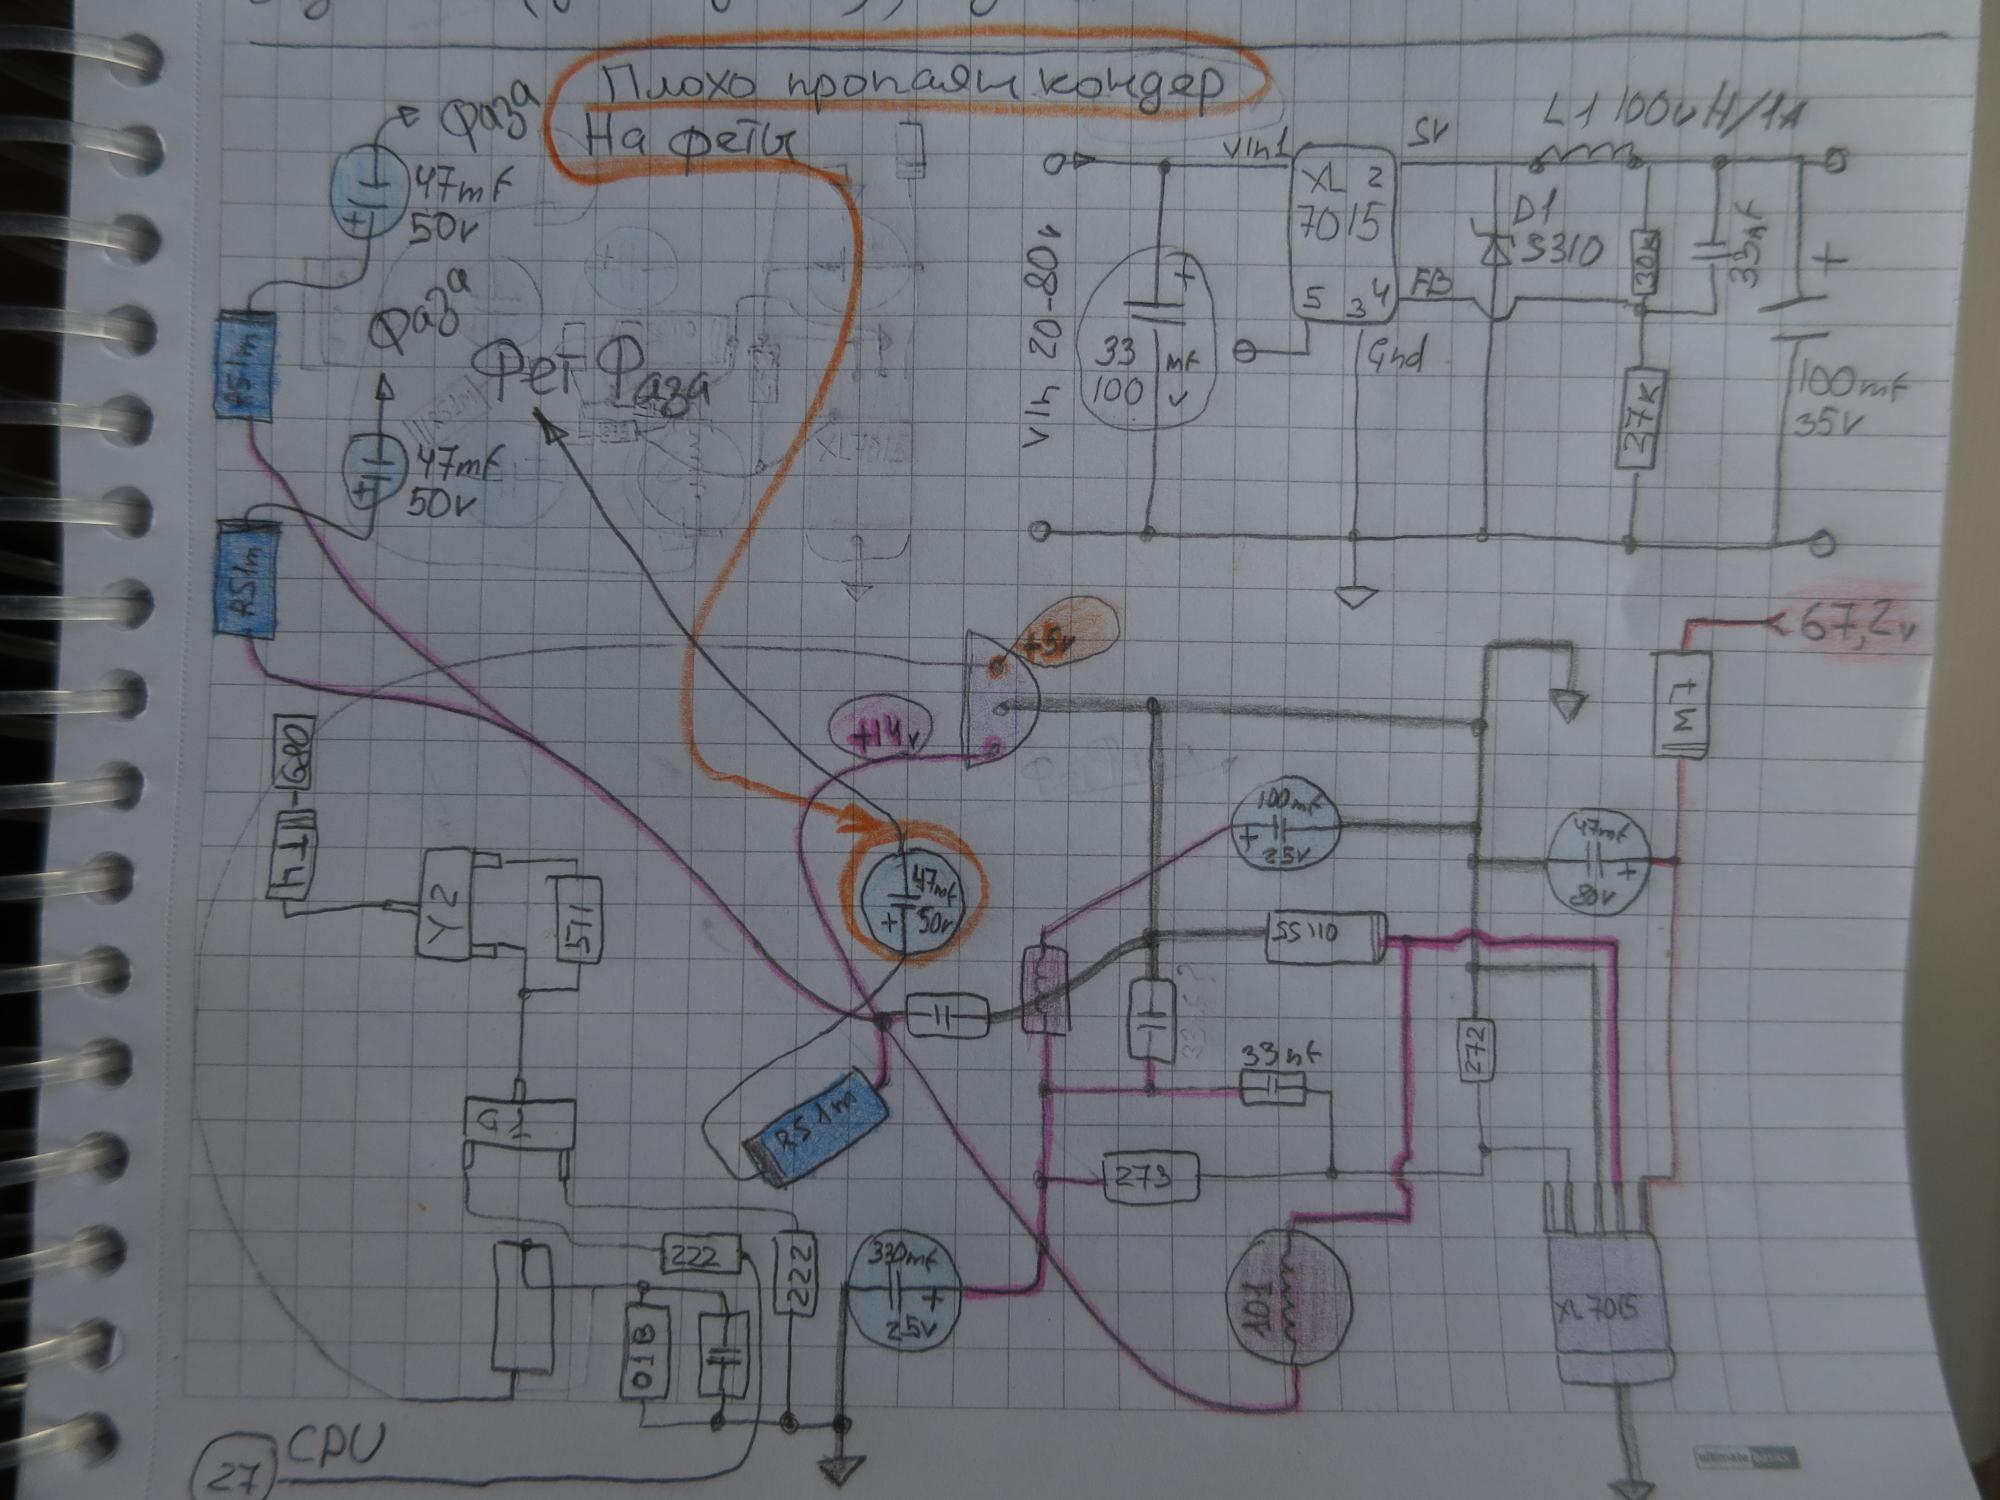 Плохо пропаян кондер
На феты
Фаза
47mf
50v
Фаза
47mf
50v
Фет Фаза
RS1m
RS1m
L1 100uH/1A
VIn1
XL 2
7015
5 3 4
FB
Gnd
D1
S310
30k
33nf
27k
VIn 20-80v
+
33 mf
100 v
+
100mf
35v
67,2v
M7
+5v
+14v
47mf
+ 50v
100mf
+
25v
47mf
+
80v
SS110
33nf
272
273
RS1m
330mf
+
25v
107
XL7015
Y2
511
G1
222
222
01B
CPU
27
ultimate basics